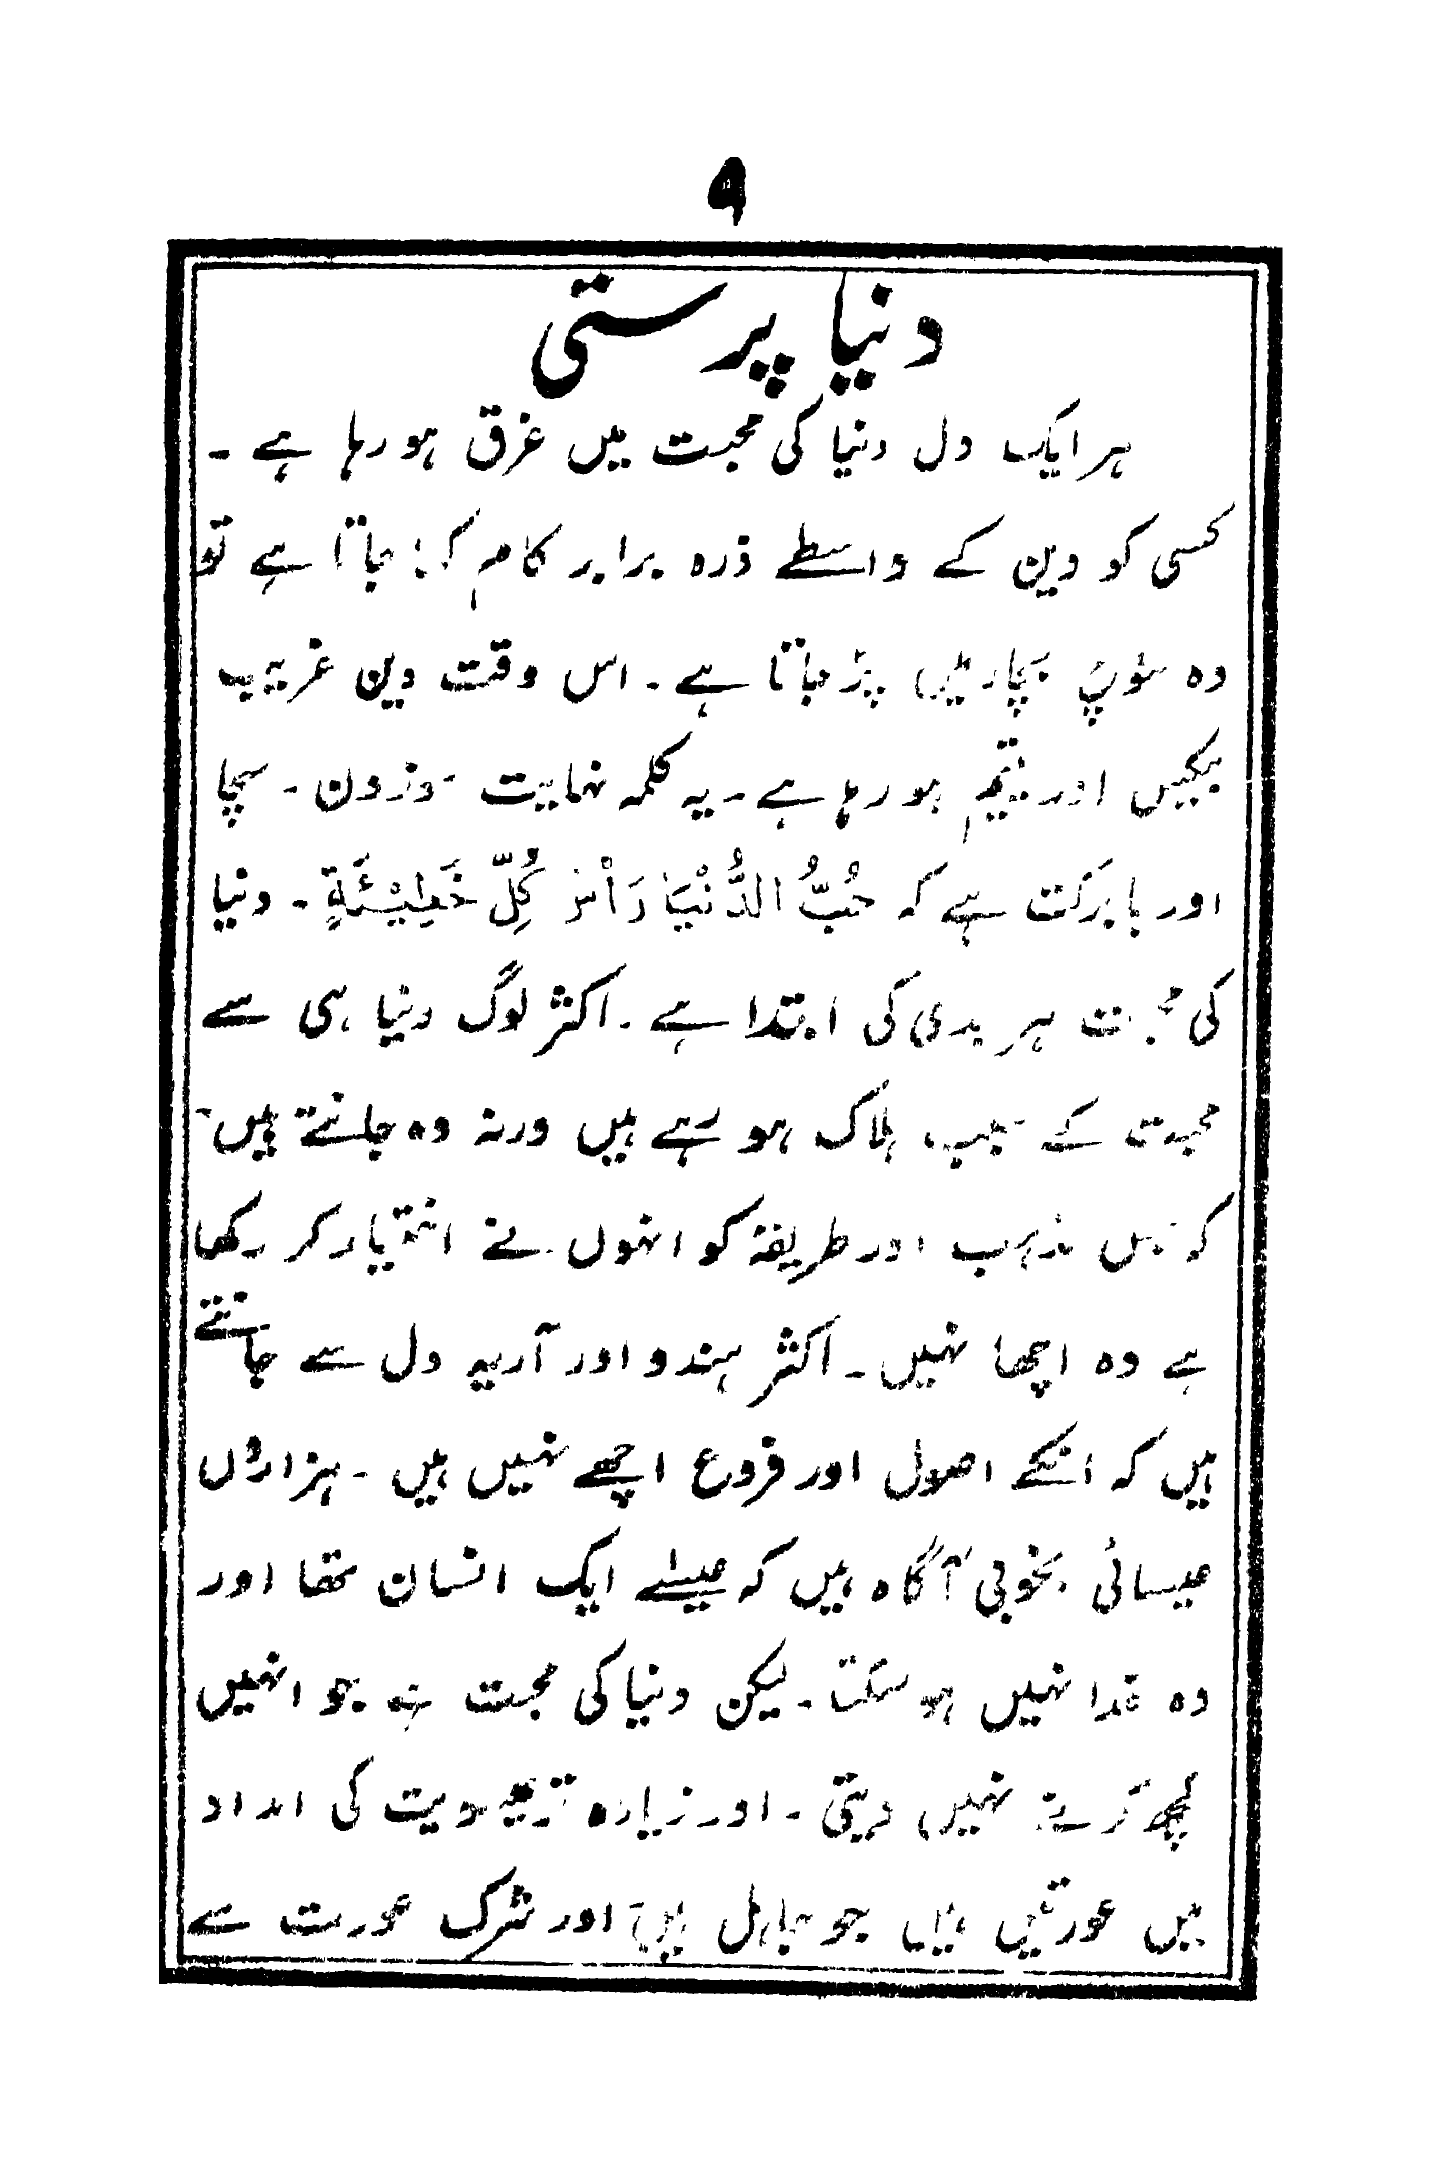 ۹
دنیا پرستی
ہر ایک دل دنیا کی محبت میں غرق ہو رہا ہے ۔
کسی کو دین کے واسطے ذرہ برابر کام کہا جاتا ہے تو
وہ سوچ بچار میں پڑ جاتا ہے ۔ اس وقت دین غریب
بیکس اور یتیم ہو رہا ہے ۔ یہ کلمہ نہایت موزون ۔ سچا
اور بابرکت ہے کہ حُبُّ الدُّنْيَا رَأْسُ كُلِّ خَطِيْئَةٍ ۔ دنیا
کی محبت ہر بدی کی ابتدا ہے ۔ اکثر لوگ دنیا ہی سے
محبت کے سبب ہلاک ہو رہے ہیں ورنہ وہ جانتے ہیں
کہ جس مذہب اور طریقہ کو انہوں نے اختیار کر رکھا
ہے وہ اچھا نہیں ۔ اکثر ہندو اور آریہ دل سے جانتے
ہیں کہ انکے اصول اور فروع اچھے نہیں ہیں ۔ ہزاروں
عیسائی بخوبی آگاہ ہیں کہ عیسےٰ ایک انسان تھا اور
وہ خدا نہیں ہو سکتا ۔ لیکن دنیا کی محبت ہے جو انہیں
کچھ کرنے نہیں دیتی ۔ اور زیادہ تر عیسویت کی امداد
میں عورتیں ہیں جو جاہل ہیں اور شرک عورت سے